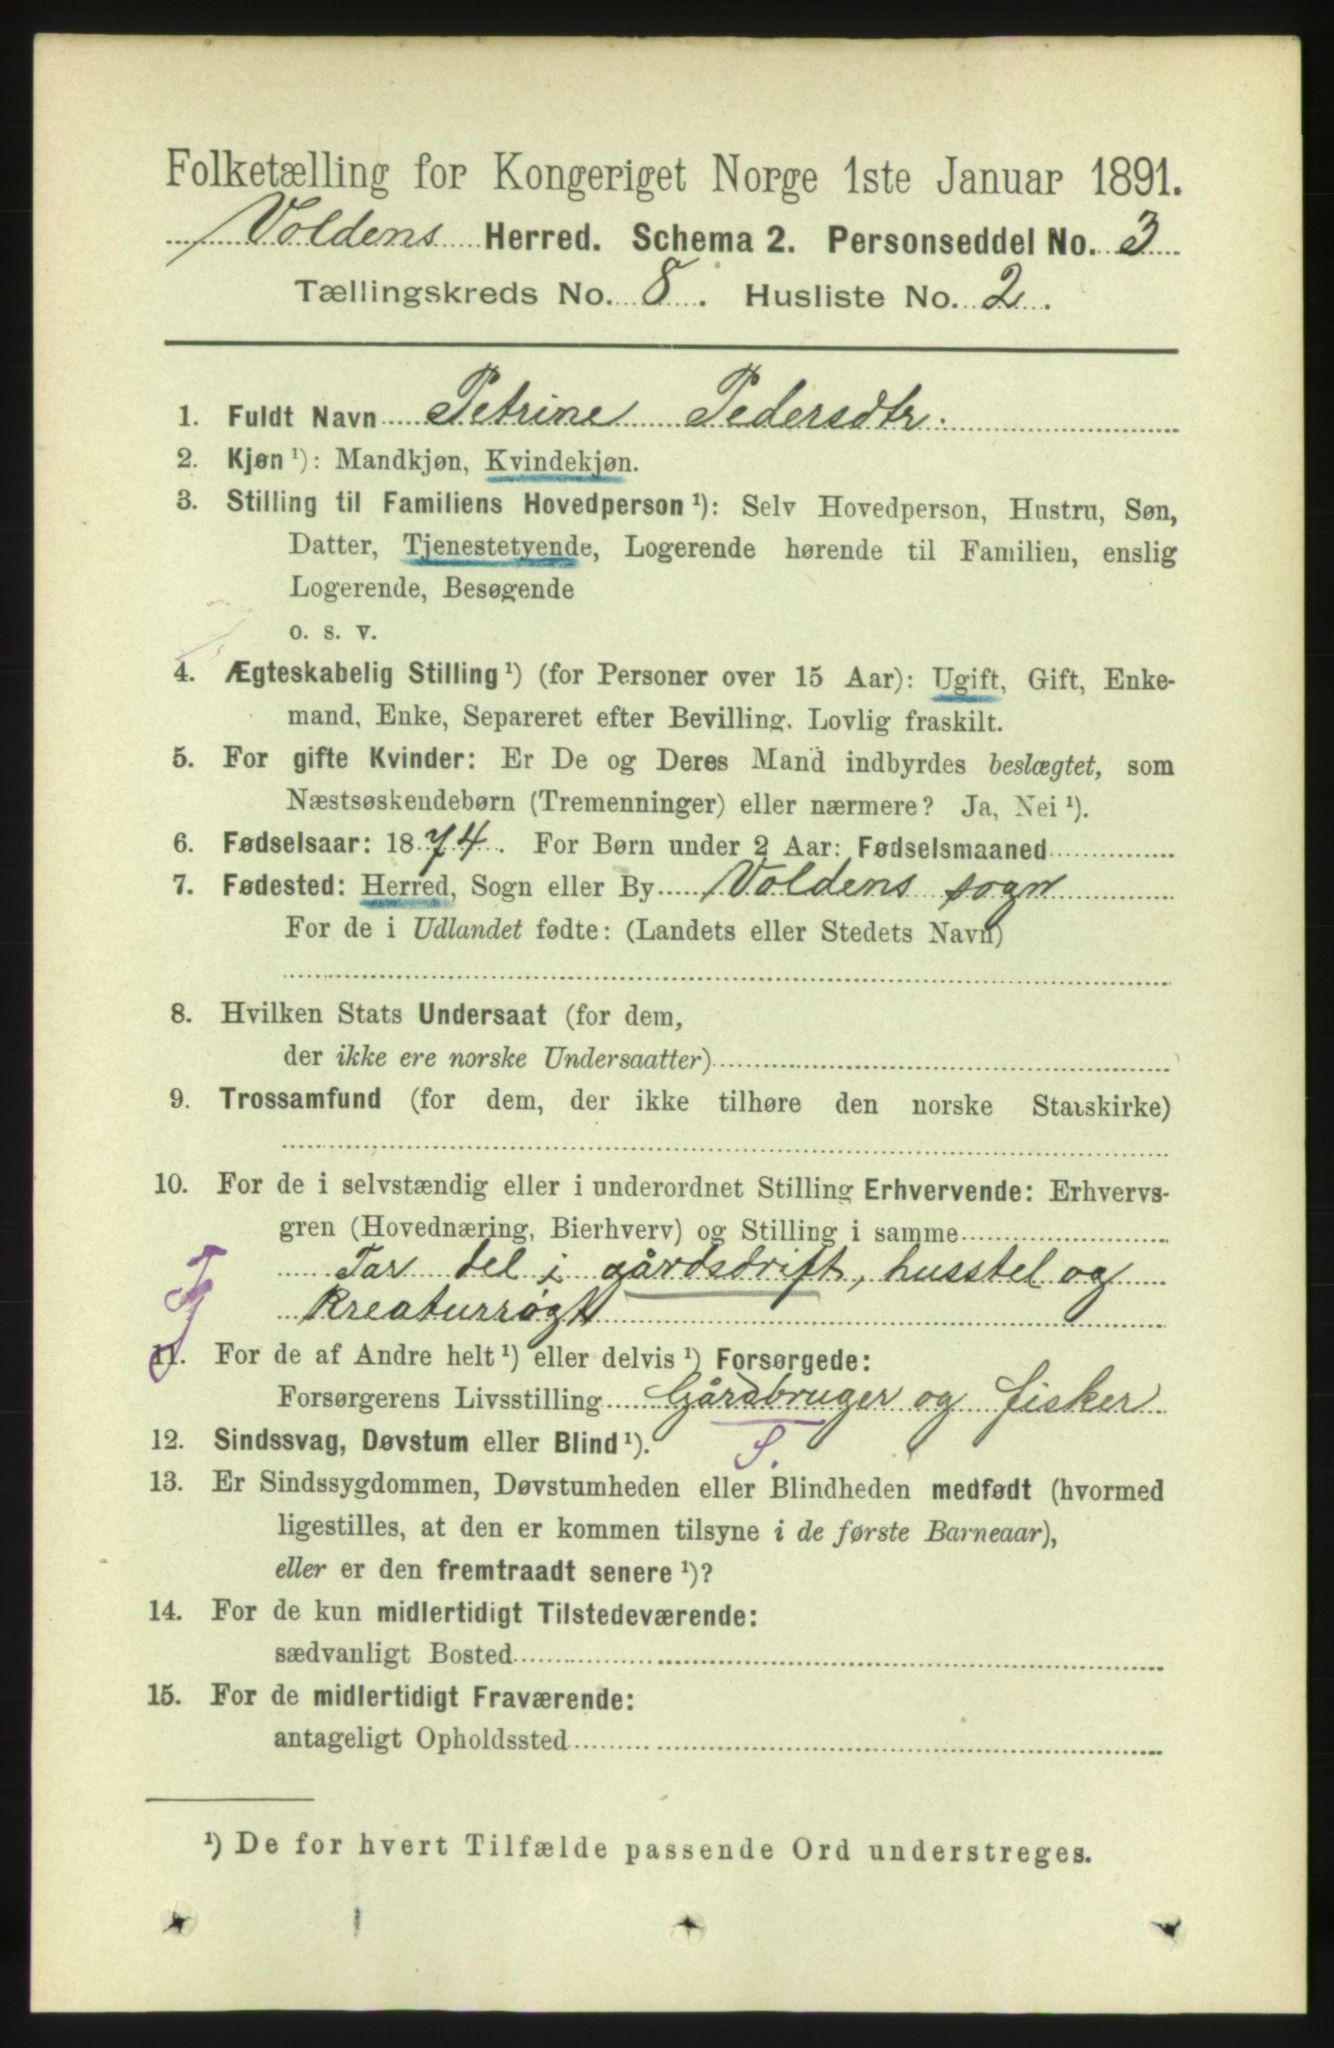 Folketælling for Kongeriget Norge 1ste Januar 1891.
Voldens Herred. Schema 2. Personseddel No. 3
Tællingskreds No. 8. Husliste No. 2.
1. Fuldt Navn Petrine Pedersdtr.
2. Kjøn ¹): Mandkjøn, Kvindekjøn.
3. Stilling til Familiens Hovedperson ¹): Selv Hovedperson, Hustru, Søn,
Datter, Tjenestetyende, Logerende hørende til Familien, enslig
Logerende, Besøgende
o. s. v.
4. Ægteskabelig Stilling ¹) (for Personer over 15 Aar): Ugift, Gift, Enke-
mand, Enke, Separeret efter Bevilling. Lovlig fraskilt.
5. For gifte Kvinder: Er De og Deres Mand indbyrdes beslægtet, som
Næstsøskendebørn (Tremenninger) eller nærmere? Ja, Nei ¹).
6. Fødselsaar: 1874. For Børn under 2 Aar: Fødselsmaaned
7. Fødested: Herred, Sogn eller By Voldens sogn
For de i Udlandet fødte: (Landets eller Stedets Navn)
8. Hvilken Stats Undersaat (for dem,
der ikke ere norske Undersaatter)
9. Trossamfund (for dem, der ikke tilhøre den norske Statskirke)
10. For de i selvstændig eller i underordnet Stilling Erhvervende: Erhvervs-
gren (Hovednæring, Bierhverv) og Stilling i samme
Tar del i gårdsdrift, husstel og
kreaturrøgt
11. For de af Andre helt ¹) eller delvis ¹) Forsørgede:
Forsørgerens Livsstilling Gårdbruger og fisker
12. Sindssvag, Døvstum eller Blind ¹). S.
13. Er Sindssygdommen, Døvstumheden eller Blindheden medfødt (hvormed
ligestilles, at den er kommen tilsyne i de første Barneaar),
eller er den fremtraadt senere ¹)?
14. For de kun midlertidigt Tilstedeværende:
sædvanligt Bosted
15. For de midlertidigt Fraværende:
antageligt Opholdssted
¹) De for hvert Tilfælde passende Ord understreges.